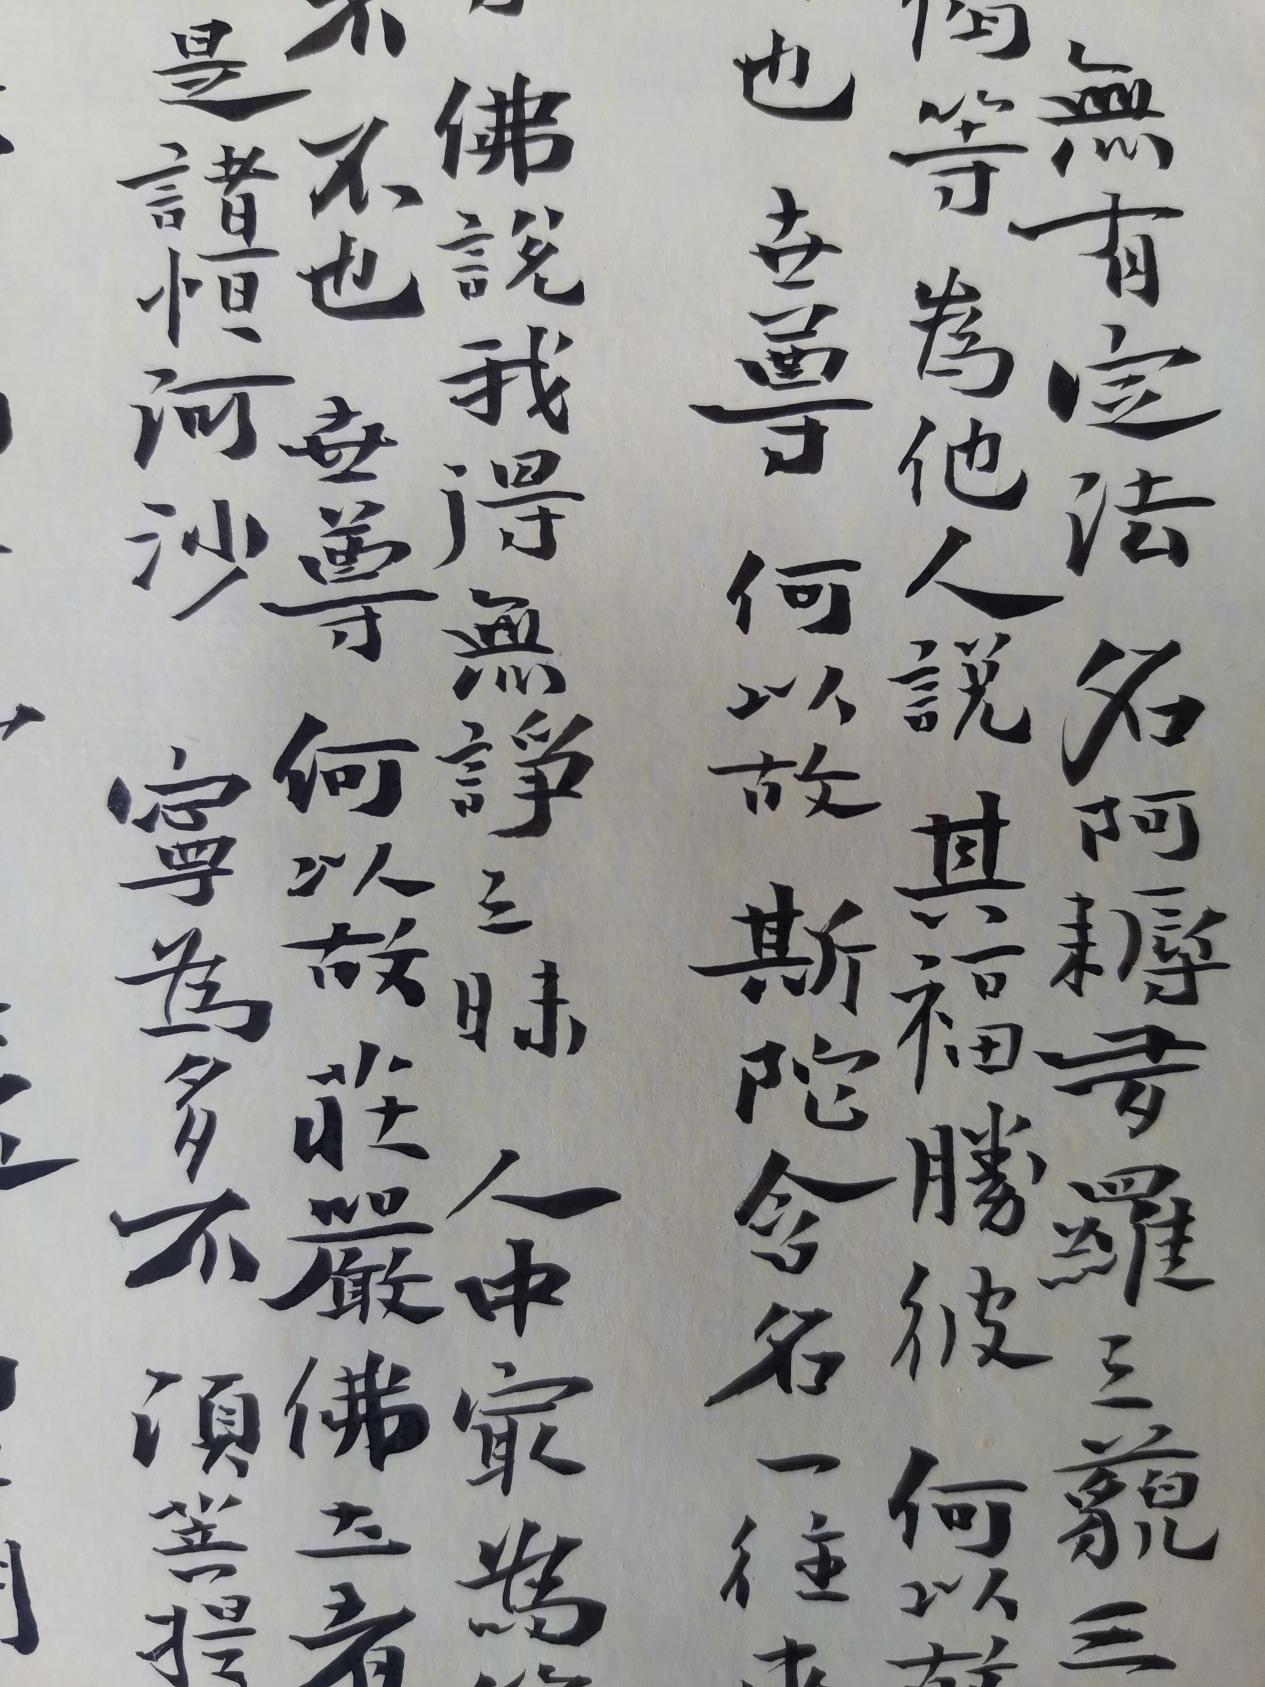 無有定法 名阿耨多羅三藐三
等 為他人說 其福勝彼 何以故
也 世尊 何以故 斯陀含名一往來
佛說我得無諍三昧 人中最為
不 不也 世尊 何以故 莊嚴佛土者
是諸恒河沙 寧為多不 須菩提